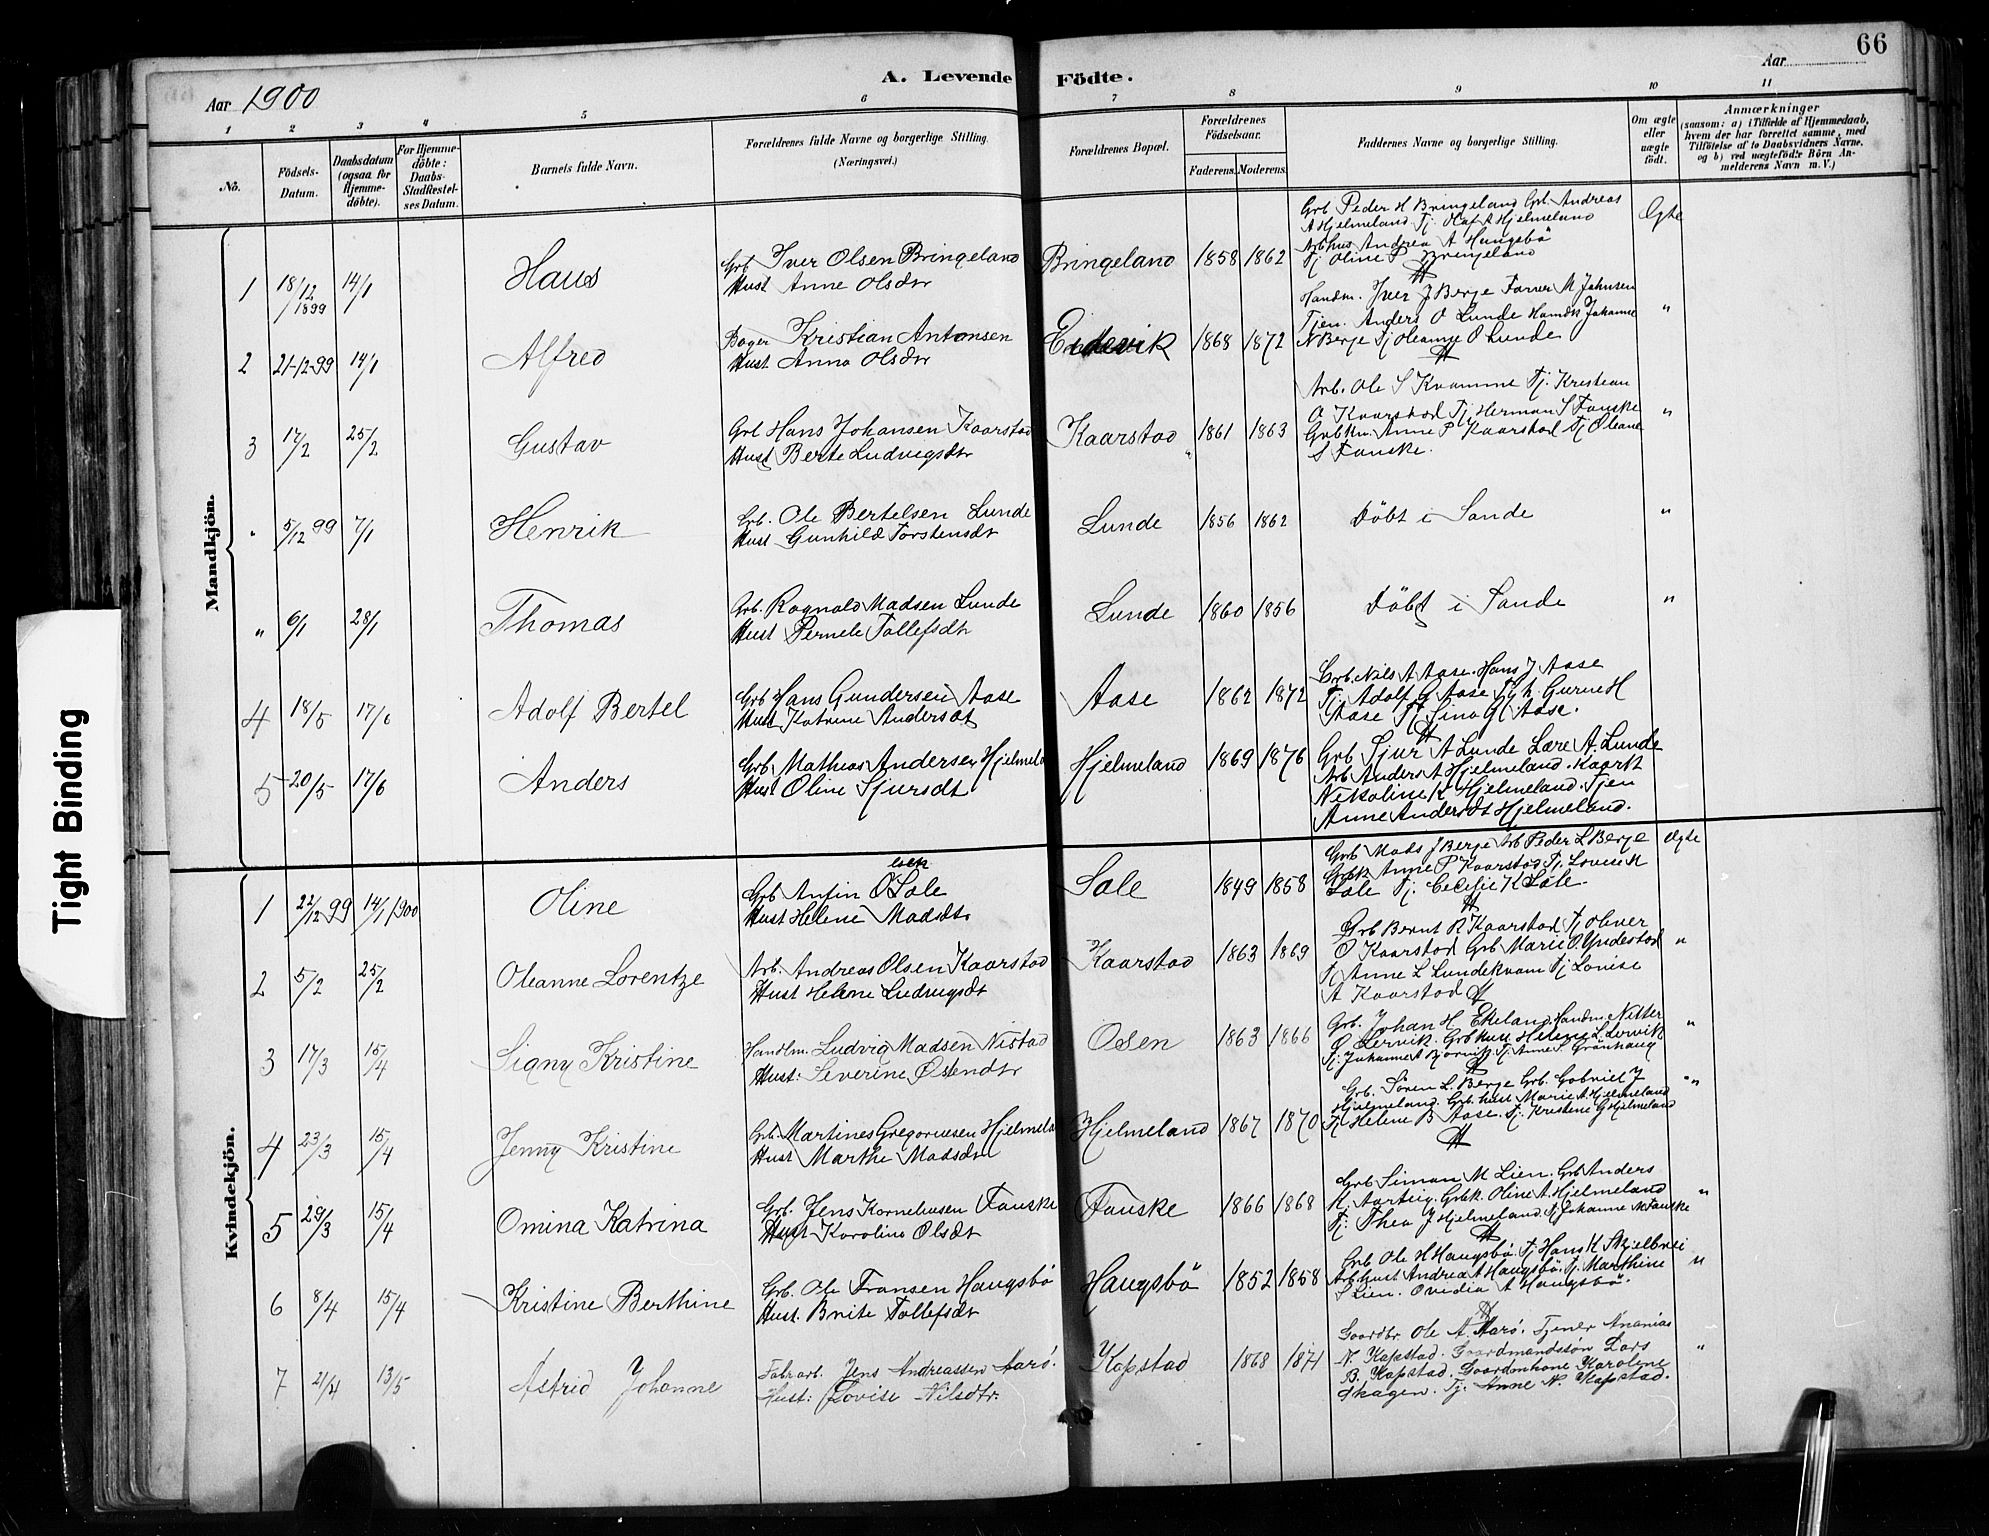 66
A. Levende Födte.
Aar 1900
Aar
1 2 3 4 5 6 7 8 9 10 11
No.
Födsels-Datum.
Daabsdatum (ogsaa for Hjemme-döbte).
For Hjemme-döbte: Daabs-Stadfæstel-ses Datum.
Barnets fulde Navn.
Forældrenes fulde Navne og borgerlige Stilling. (Næringsvei.)
Forældrenes Bopæl.
Forældrenes Födselsaar.
Faderens. Moderens.
Faddernes Navne og borgerlige Stilling.
Om ægte eller uægte födt.
Anmærkninger
(saasom: a) i Tilfælde af Hjemmedaab,
hvem der har forrettet samme, med
Tilföielse af to Daabsvidners Navne.
og b) ved uægtefödte Börn An-
melderens Navn m. V.)
Mandkjön.
Grb Peder H Bringeland Grb. Andreas
A Hjelmeland. Tj. Olaf A Hjelmeland
Arbhus Andrea A Haugsbö
Tj Oline P. Bringeland
1 18/12 1899 14/1 Hans
Grb Iver Olsen Bringeland
Hust Anne Olsdtr
Bringeland 1858 1862 Egte
Handm. Iver J Berge Farver M Johnsen
Tjen. Anders O Lunde Handk Johanne
N Berge Tj Oleanne O Lunde
2 21-12-99 14/1 Alfred
Bager Kristian Antonsen
Hust Anna Olsdtr
Endevik 1868 1872 "
Arb. Ole S Kvamme Tj. Kristian
O Kaarstad Tj Herman S Fauske
Grbkn. Anne P Kaarstad Tj Oleane
S Fauske.
3 17/2 25/2 Gustav
Grb Hans Johansen Kaarstad
Hust Berte Ludvigsdtr
Kaarstad 1861 1863 "
" 5/12 99 7/1 Henrik
Grb. Ole Bertelsen Lunde
Hust Gunhild Torstensdt
Lunde 1856 1862 Döbt i Sande "
" 6/1 28/1 Thomas
Grb. Ragnald Madsen Lunde
Hust Pernele Tollefsdt
Lunde 1860 1856 Döbt i Sande "
4 18/5 17/6 Adolf Bertel
Grb Hans Gundersen Aase
Hust Katrine Andersdt
Aase 1862 1872
Grb. Nils A Aase. Hans J Aase
Tj. Adolf G Aase Gurine H
Aase Tj Sina Aase.
5 20/5 17/6 Anders
Grb. Mathias Andersen Hjelmeland
Hust Oline Sjursdt
Hjelmeland 1869 1876
Grb Sjur A Lunde Lære A. Lunde
Arb Anders A Hjelmeland.
Nikoline K Hjelmeland. Tjen
Anne Andersdt Hjelmeland.
Kvindekjön.
1 22/12 99 14/1 1900 Oline
Grb Anfin Olsen Sale
Hust Helene Madsdt.
Sale 1849 1858
Grb Mads J Berge Arb Peder L Berge
Anne P Kaarstad Tj. Lovise K
Sale Tj. Cecelie K Sale.
Ægte
2 5/2 25/2 Oleanne Lorentze
Arb. Andreas Olsen Kaarstad
Hust Helene Ludvigsdt
Kaarstad 1863 1869
Grb Bernt R Kaarstad Tj Oliver
O Kaarstad Grb Marie O. Yndestad
Tj Anne L Lundekvam Tj Lovise
A Kaarstad
"
3 17/3 15/4 Signy Kristine
Handlm. Ludvig Madsen Nistad
Hust: Severine Østensdtr
Osen 1863 1866
Grb. Johan H Ekeland. Handm Nitter
O Lervik. Grbhust Helene L Lervik
Tj. Johanne A Björnit Tj. Anne S. Grönhaug
"
4 23/3 15/4 Jenny Kristine
Grb. Martines Gregoriussen Hjelmeland
Hust Marthe Madsdtr
Hjelmeland 1867 1870
Grb. Sören L. Berge Grb. Gabriel J
Hjelmeland. Grb. hust Marie A. Hjelmeland
Tj. Helene B Aase. Tj. Kristine G Hjelmeland
"
5 29/3 15/4 Omina Katrina
Grb. Jens Korneliusen Fauske
Hust Karoline Olsdt
Fauske 1866 1868
Grb Simon M Lien. Grb Anders
Grbk. Oline A. Hjelmeland
Tj. Thea J Hjelmeland. Tj Johanne M Fauske
"
6 8/4 15/4 Kristine Berthine
Grb. Ole Fransen Haugsbö
Hust. Brite Tollefsdt
Haugsbö 1852 1858
Grb Ole H Haugsbö. Tj Hans K Skjelbrei
Arbhust Andrea A Haugsbö. Tj. Marthine
S Lien. Ovidia A Haugsbö.
"
7 2/4 13/5 Astrid Johanne
Fabrarb. Jens Andreassen Aarö.
Hust: Lovise Nilsdtr.
Kapstad 1868 1871
Gaardbr. Ole A. Aarö. Tjener Ananias
N. Kapstad. Gaardmandssön Lars
B. Kapstad. Gaardmkone Karoline
Skagen. Tj. Anne N. Kapstad.
"
Tight Binding